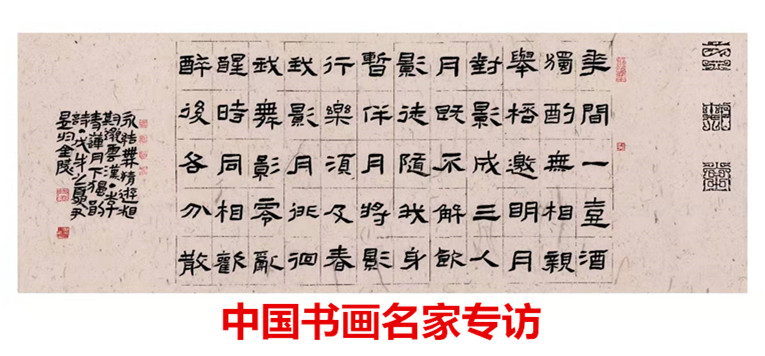 華間一壺酒
獨酌無相親
舉桮邀明月
對影成三人
月既不解飲
影徒隨我身
暫伴月將影
行樂須及春
我影月徘徊
我舞影零亂
醒時同相歡
醉後各分散
永結無情遊相
期邈雲漢李
青蓮月下獨酌
詩
金陵
中国书画名家专访